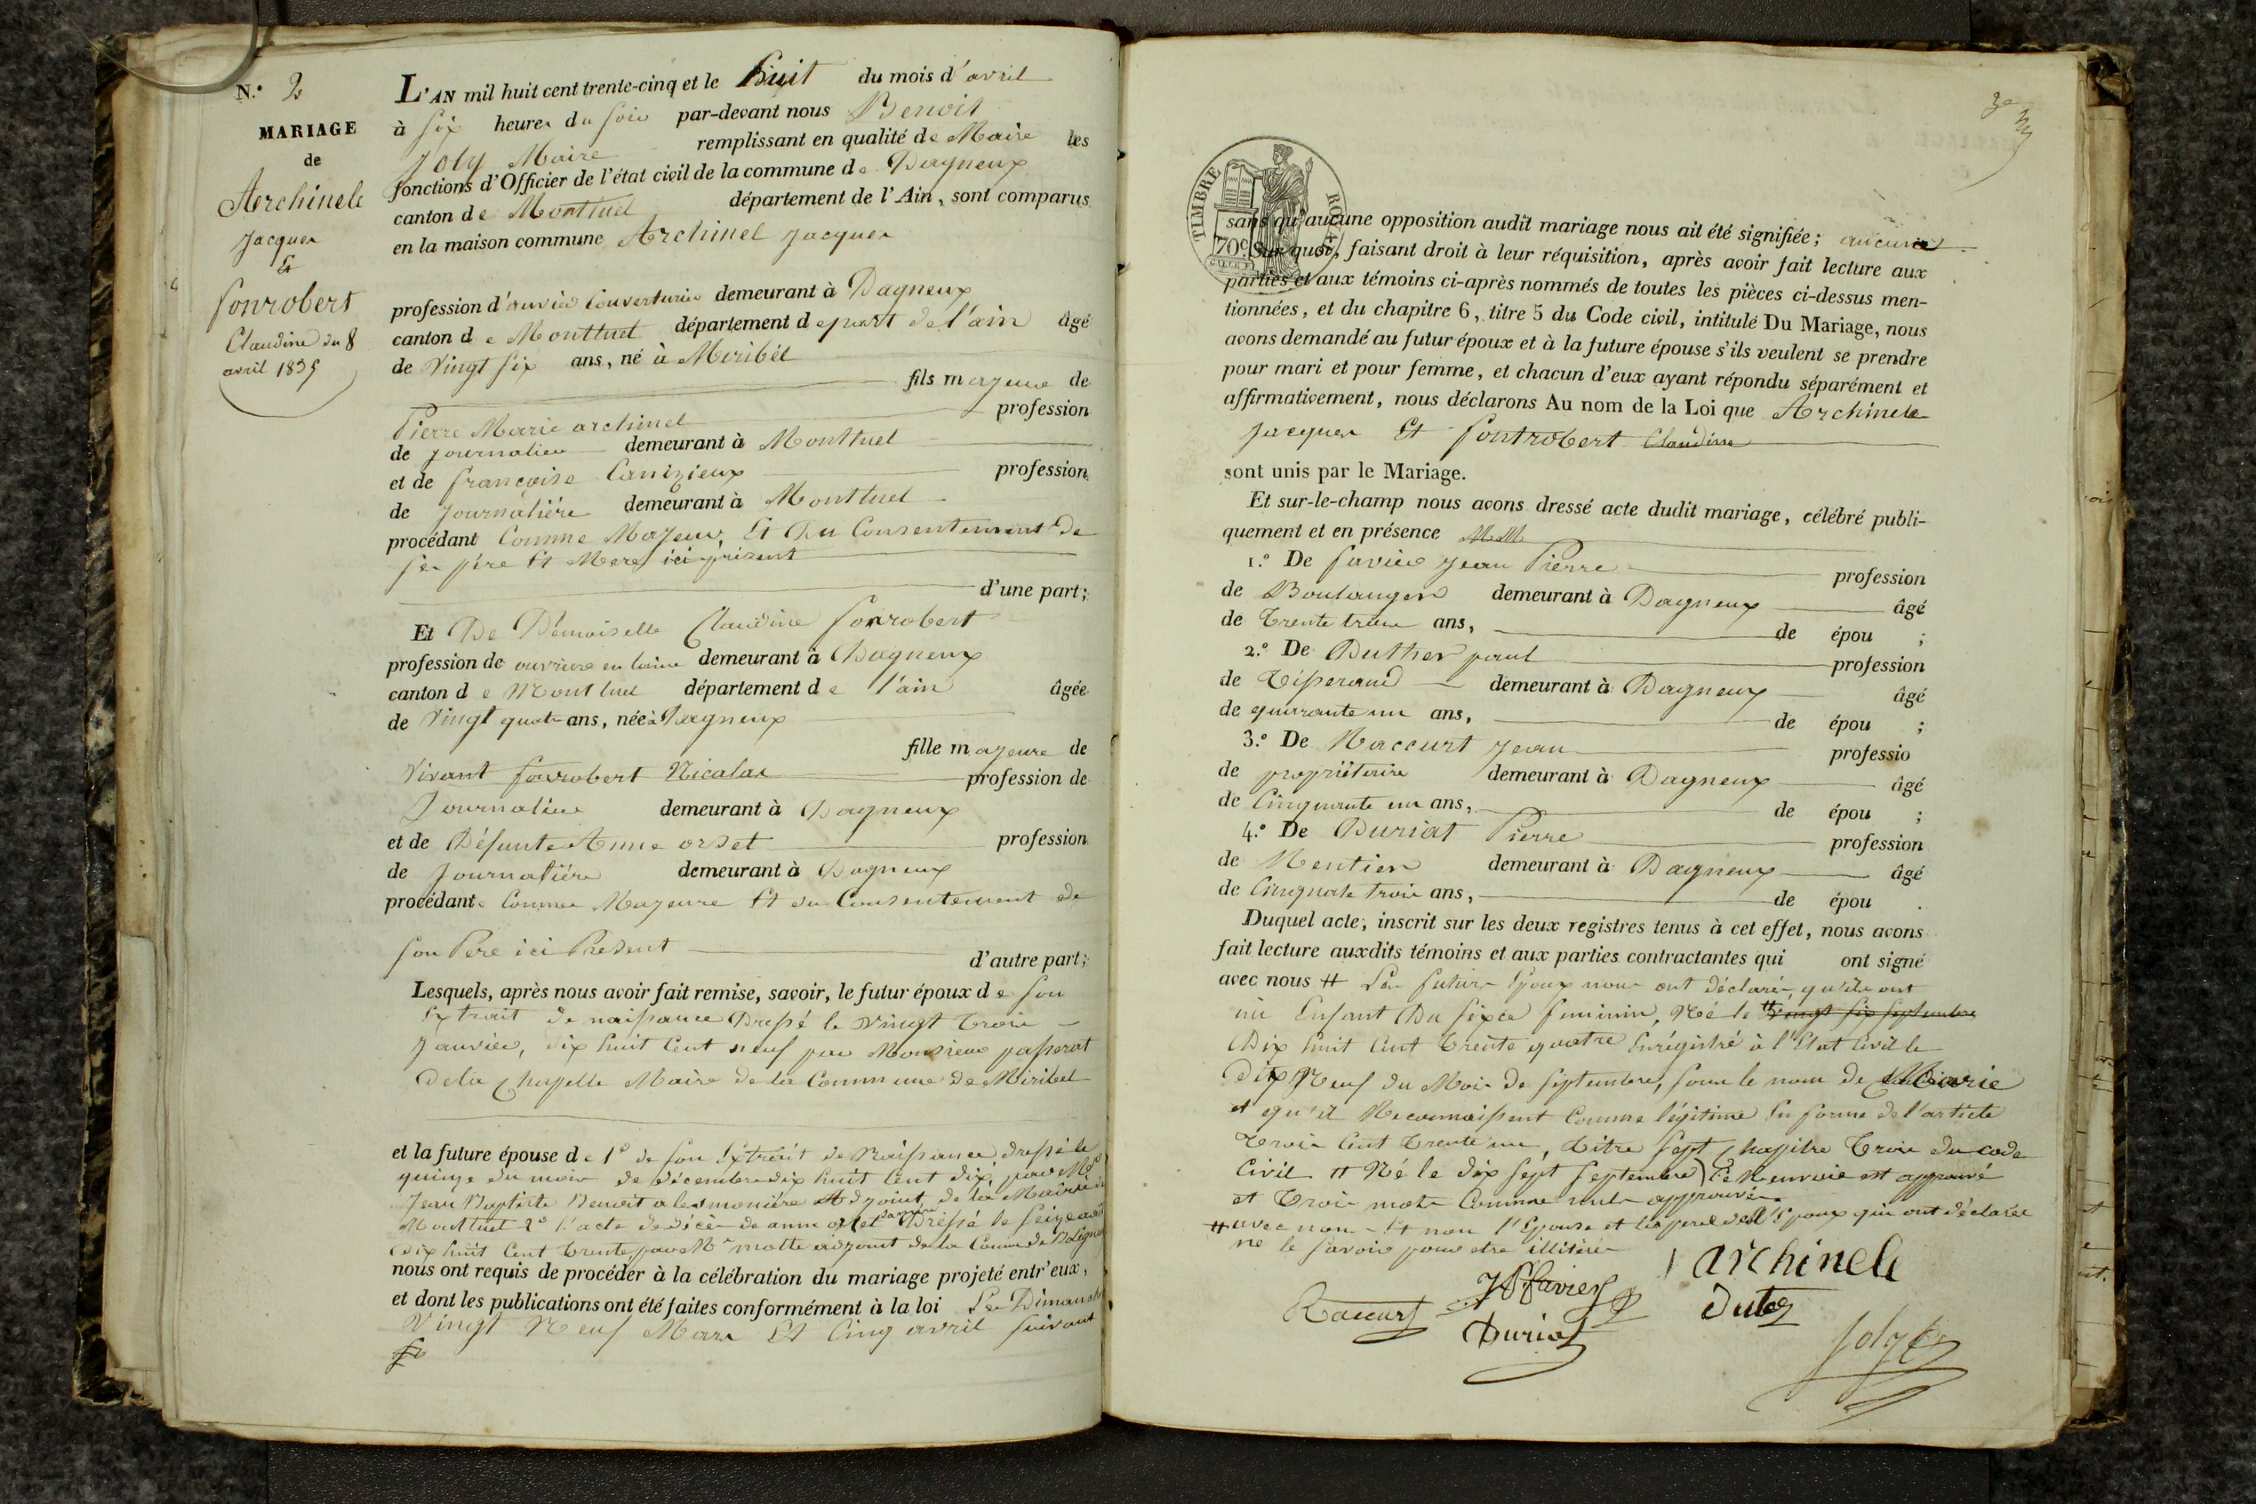 N.º 2
MARIAGE
de
Archinele
Jacques
Et
fonrobert
Claudine du 8
avril 1835
L'AN mil huit cent trente-cinq et le huit du mois d'avril
à six heures du soir par-devant nous Benoit
Joly Maire remplissant en qualité de Maire les
fonctions d'Officier de l'état civil de la commune de Dagneux
canton de Montluel département de l'Ain, sont comparus
en la maison commune Archinel Jacques
profession d'ouvrier Couverturier demeurant à Dagneux
canton de Montluel département depart de l'ain âgé
de Vingt six ans, né à Miribel
fils majeur de
Pierre Marie archinel profession
de journalier demeurant à Montluel
et de françoise Canizieux profession
de journalière demeurant à Montluel
procédant Comme Majeur, Et Du Consentement De
ses père Et Mere ici présent
d'une part;
Et De Demoiselle Claudine fonrobert
profession de ouvriere en laine demeurant à Dagneux
canton de Montluel département de l'ain âgée
de Vingt quatre ans, née à Dagneux
fille majeure de
Vivant fonrobert Nicolas profession de
Journalier demeurant à Dagneux
et de Défunte Anne orset profession
de Journalière demeurant à Dagneux
procédant Comme Majeure Et du Consentement de
son Pere ici Présent
d'autre part;
Lesquels, après nous avoir fait remise, savoir, le futur époux de son
Extrait de naissance Dressé le vingt trois
Janvier, dix huit Cent neuf par Monsieur passerat
De la Chapelle Maire de la Commune de Miribel
et la future épouse de 1º de son Extrait de Naissance dressé le
quinze du mois de décembre dix huit Cent dix, par Mr
Jean Baptiste Benoit alesmonière Adjoint de la Mairie de
Montluel 2º l'acte de décès de anne orset Dressé le seize
dix huit Cent trente, par Mr motte adjoint de la Comune de
nous ont requis de procéder à la célébration du mariage projeté entr'eux,
et dont les publications ont été faites conformément à la loi Les Dimanche
Vingt Neuf Mars Et Cinq avril suivant
TIMBRE ROYAL
70c
sans qu'aucune opposition audit mariage nous ait été signifiée; aucune
Sur quoi, faisant droit à leur réquisition, après avoir fait lecture aux
parties et aux témoins ci-après nommés de toutes les pièces ci-dessus men-
tionnées, et du chapitre 6, titre 5 du Code civil, intitulé Du Mariage, nous
avons demandé au futur époux et à la future épouse s'ils veulent se prendre
pour mari et pour femme, et chacun d'eux ayant répondu séparément et
affirmativement, nous déclarons Au nom de la Loi que Archinele
Jacques Et fontrobert Claudine
sont unis par le Mariage.
Et sur-le-champ nous avons dressé acte dudit mariage, célébré publi-
quement et en présence
1.º De favier Jean Pierre profession
de Boulanger demeurant à Dagneux âgé
de Trente trois ans, de épou ;
2.º De Duther paul profession
de Tisserand demeurant à Dagneux âgé
de quarante un ans, de épou ;
3.º De Raccurt Jean professio
de propriétaire demeurant à Dagneux âgé
de Cinquante un ans, de épou ;
4.º De Duriat Pierre profession
de Rentier demeurant à Dagneux âgé
de Cinquante trois ans, de épou .
Duquel acte, inscrit sur les deux registres tenus à cet effet, nous avons
fait lecture auxdits témoins et aux parties contractantes qui ont signé
avec nous # Les futurs Epoux nous ont déclarés qu'ils ont
un Enfant Du sixce feminin, Né le # Vingt six septembre
Dix huit Cent Trente quatre Enrégistré à l'Etat Civil le
Dix Neuf du Mois de septembre, sous le nom de Marie
et qu'il Reconnaissent Comme légitime En forme de l'article
Trois Cent Trente un, titre sept Chapitre Trois du code
Civil # Né le dix sept septembre) Ce Renvoie est approuvé
et Trois mots Comme nuls approuvés
# avec nous Et non l'Epouse et les pere de l'Epoux qui ont déclarés
ne le savoir pour etre illitérés
archinele
JP favier
Raccurt
Duther
Duriat
Joly